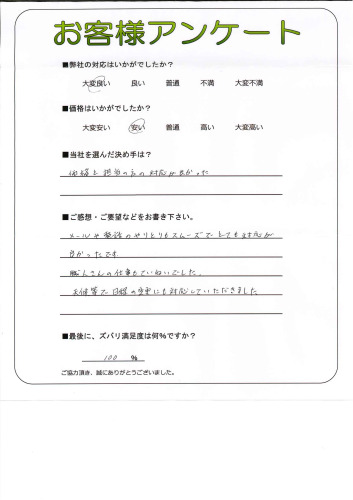 お客様アンケート
■弊社の対応はいかがでしたか？
大変良い 良い 普通 不満 大変不満
■価格はいかがでしたか？
大変安い 安い 普通 高い 大変高い
■当社を選んだ決め手は？
価格と担当の方の対応が良かった
■ご感想・ご要望などをお書き下さい。
メールや電話のやりとりもスムーズでとても対応が
良かったです
職人さんの仕事もていねいでした。
天候等で日程の変更にも対応していただきました
■最後に、ズバリ満足度は何％ですか？
100 %
ご協力頂き、誠にありがとうございました。